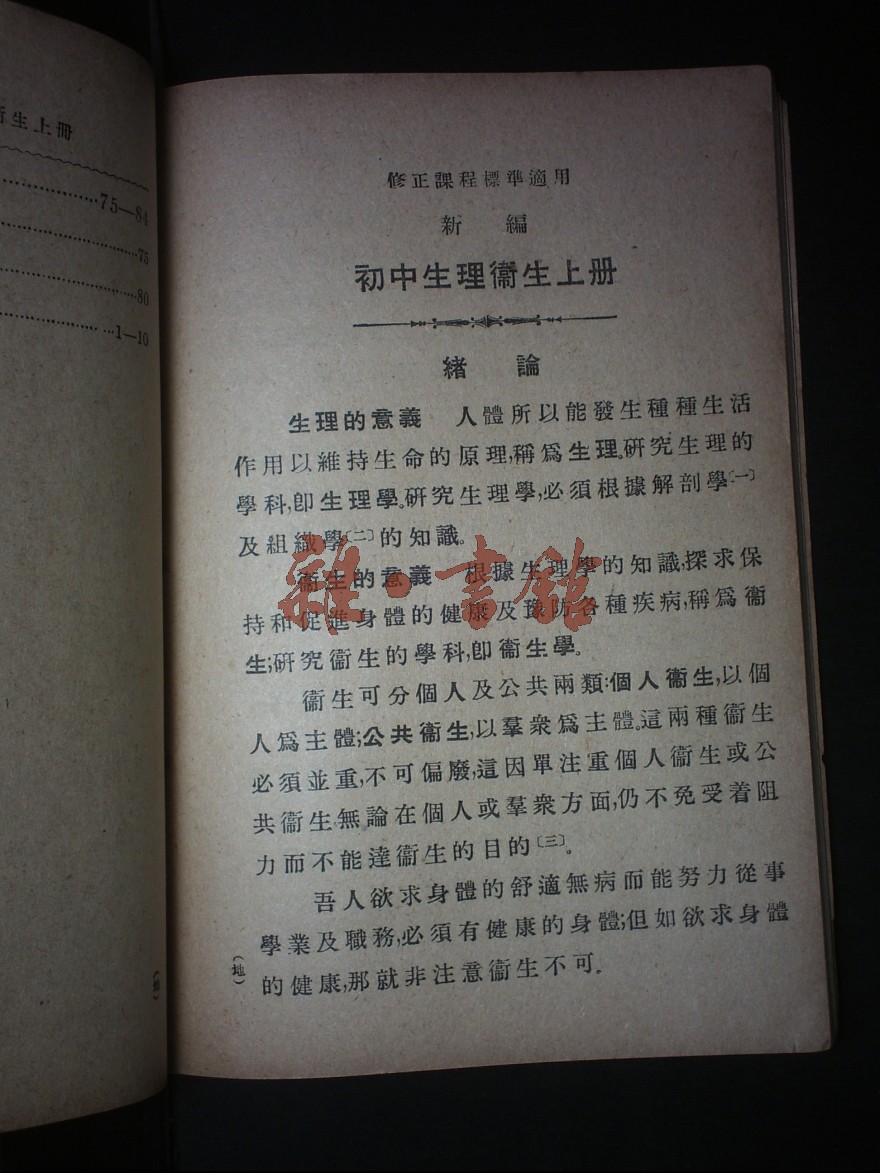 衛生上冊
75—84
75
80
1—10
修正課程標準適用
新編
初中生理衞生上册
緒論
生理的意義 人體所以能發生種種生活
作用以維持生命的原理,稱爲生理。研究生理的
學科,卽生理學。研究生理學,必須根據解剖學〔一〕
及組織學〔二〕的知識。
衞生的意義 根據生理學的知識,探求保
持和促進身體的健康及豫防各種疾病,稱爲衞
生;研究衞生的學科,卽衞生學。
衞生可分個人及公共兩類:個人衞生,以個
人爲主體;公共衞生,以羣衆爲主體。這兩種衞生
必須並重,不可偏廢,這因單注重個人衞生或公
共衞生,無論在個人或羣衆方面,仍不免受着阻
力而不能達衞生的目的〔三〕。
吾人欲求身體的舒適無病而能努力從事
學業及職務,必須有健康的身體;但如欲求身體
的健康,那就非注意衞生不可.
(地)
雜·書館